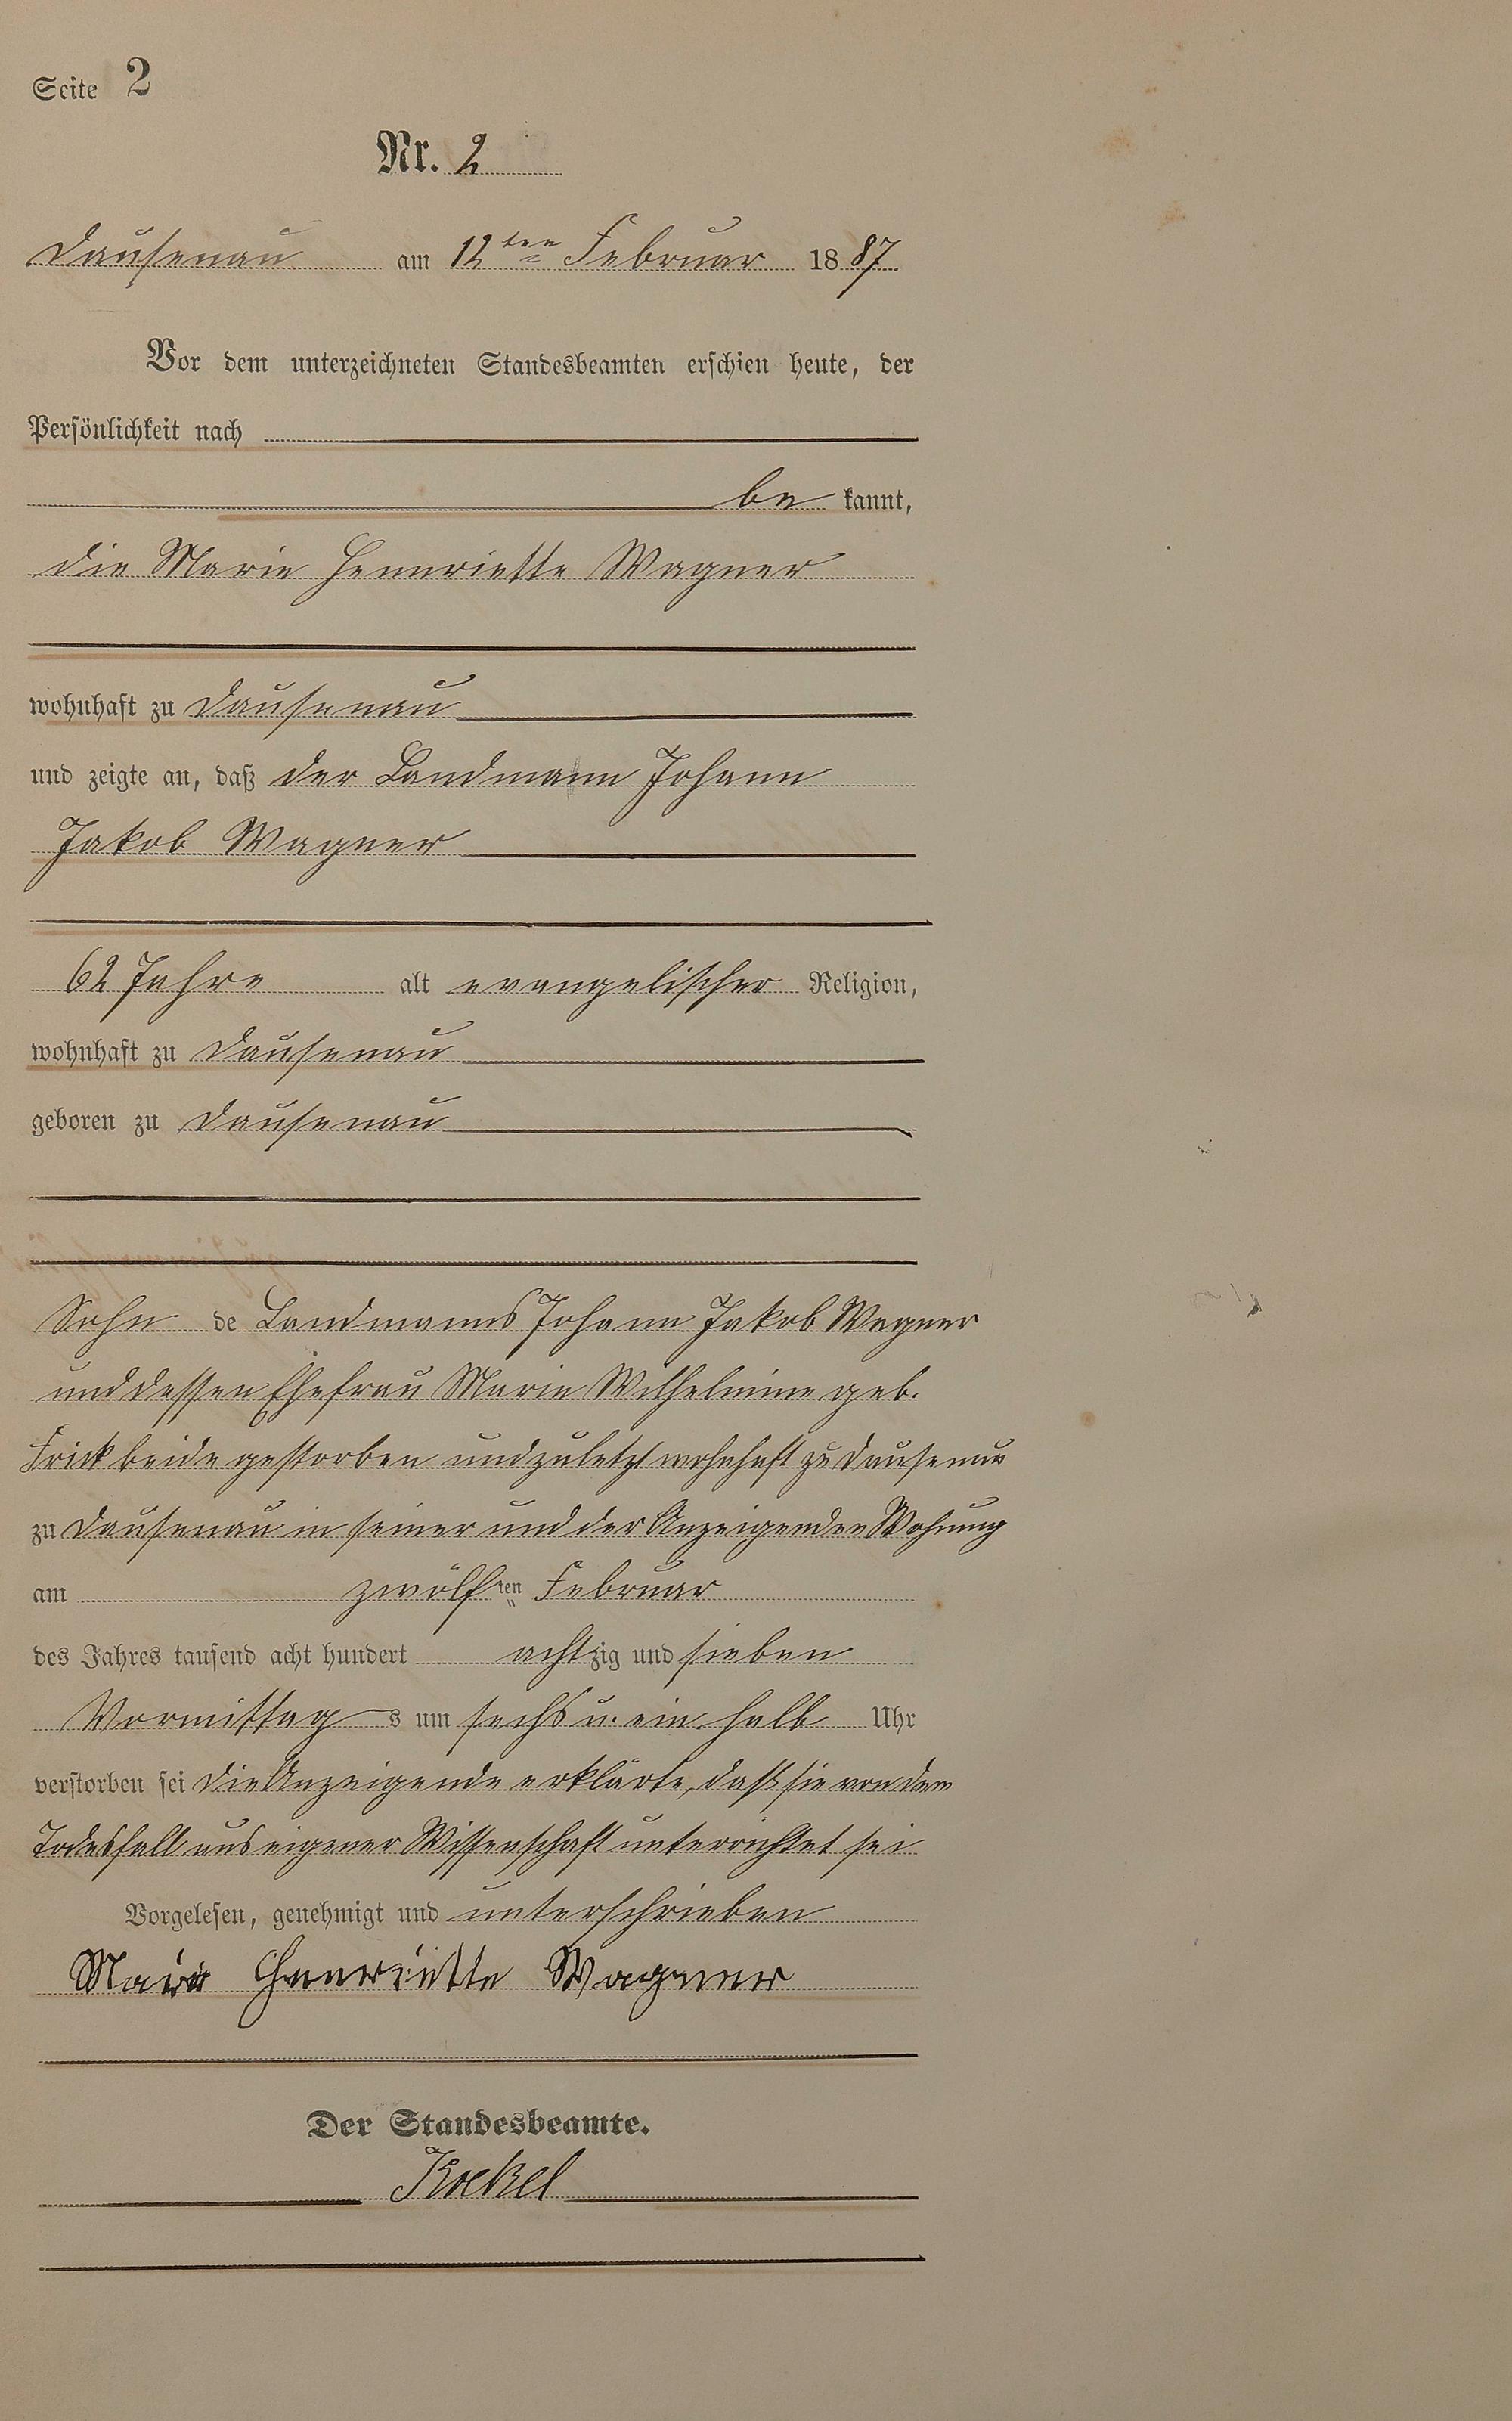 Seite 2
Nr. 2
Dausenau am 12ten Februar 1887.
Vor dem unterzeichneten Standesbeamten erschien heute, der
Persönlichkeit nach
be kannt,
die Marie Hennriette Wagner
wohnhaft zu Dausenau
und zeigte an, daß der Landmann Johann
Jakob Wagner
62 Jahre alt evangelischer Religion,
wohnhaft zu Dausenau
geboren zu Dausenau
Sohn de Landmanns Johann Jakob Wagner
und dessen Ehefrau Marie Wilhelmine geb.
Frick beide gestorben und zuletzt wohnhaft zu Dausenau
zu Dausenau in seiner und der Anzeigenden Wohnung
am zwölften Februar
des Jahres tausend acht hundert achtzig und sieben
Vormittag s um sechs u. ein halb Uhr
verstorben sei die Anzeigende erklärte, daß sie von dem
Todesfall aus eigener Wissenschaft unterrichtet sei
Vorgelesen, genehmigt und unterschrieben
Marie Hennriette Wagner
Der Standesbeamte.